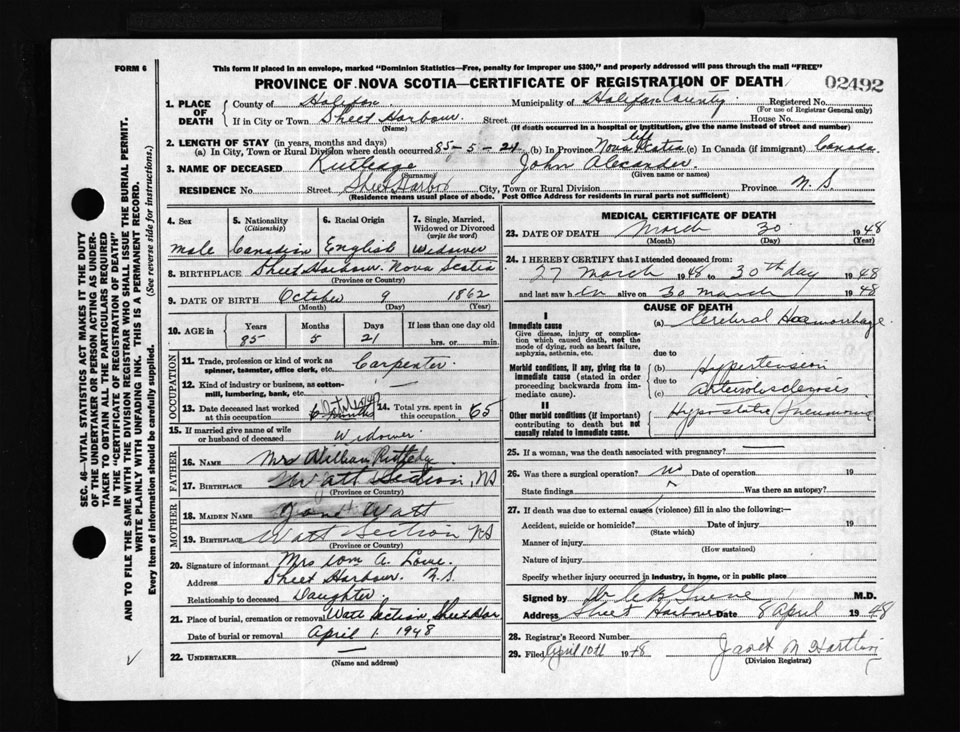 FORM 6
This form if placed in an envelope, marked "Dominion Statistics—Free, penalty for improper use $300," and properly addressed will pass through the mail "FREE"
PROVINCE OF NOVA SCOTIA—CERTIFICATE OF REGISTRATION OF DEATH
02492
SEC. 46—VITAL STATISTICS ACT MAKES IT THE DUTY
OF THE UNDERTAKER OR PERSON ACTING AS UNDER-
TAKER TO OBTAIN ALL THE PARTICULARS REQUIRED
IN THE "CERTIFICATE OF REGISTRATION OF DEATH"
AND TO FILE THE SAME WITH THE DIVISION REGISTRAR WHO SHALL ISSUE THE BURIAL PERMIT.
WRITE PLAINLY WITH UNFADING INK. THIS IS A PERMANENT RECORD.
Every item of information should be carefully supplied. (See reverse side for instructions.)
1. PLACE OF DEATH
County of Halifax Municipality of Halifax County Registered No.
(For use of Registrar General only)
If in City or Town Sheet Harbour. Street House No.
(Name) (If death occurred in a hospital or institution, give the name instead of street and number)
2. LENGTH OF STAY (in years, months and days)
(a) In City, Town or Rural Division where death occurred 85-5-21 (b) In Province life Nova Scotia (c) In Canada (if immigrant) Canada.
3. NAME OF DECEASED Rutledge John Alexander.
(Surname) (Given name or names)
RESIDENCE No Street Sheet Harbor City, Town or Rural Division Province N.S
(Residence means usual place of abode. Post Office Address for residents in rural parts not sufficient)
4. Sex
male
5. Nationality (Citizenship)
Canadian
6. Racial Origin
English
7. Single, Married, Widowed or Divorced (write the word)
Widower
8. BIRTHPLACE Sheet Harbour. Nova Scotia
(Province or Country)
9. DATE OF BIRTH October 9 1862
(Month) (Day) (Year)
10. AGE in
Years Months Days If less than one day old
85 5 21 hrs. or min.
OCCUPATION
11. Trade, profession or kind of work as spinner, teamster, office clerk, etc. Carpenter.
12. Kind of industry or business, as cotton-mill, lumbering, bank, etc. —
13. Date deceased last worked at this occupation
14. Total yrs. spent in this occupation 65
15. If married give name of wife or husband of deceased Widower
FATHER
16. NAME Mr William Rutledge
17. BIRTHPLACE Watt Section, NS
(Province or Country)
MOTHER
18. MAIDEN NAME Jane Watt
19. BIRTHPLACE Watt Section NS
(Province or Country)
20. Signature of informant Mrs Wm A. Lowe.
Address Sheet Harbour. N.S.
Relationship to deceased Daughter
21. Place of burial, cremation or removal Watt Section, Sheet Har
Date of burial or removal April 1. 1948
22. UNDERTAKER
(Name and address)
MEDICAL CERTIFICATE OF DEATH
23. DATE OF DEATH March 30 1948
(Month) (Day)
24. I HEREBY CERTIFY that I attended deceased from:
27 March 1948 to 30th day 1948
and last saw him alive on 30 March 1948
CAUSE OF DEATH
I
Immediate cause
Give disease, injury or complica-
tion which caused death, not the
mode of dying, such as heart failure,
asphyxia, asthenia, etc.
(a) Cerebral Haemorrhage
due to
Morbid conditions, if any, giving rise to
immediate cause (stated in order
proceeding backwards from im-
mediate cause).
(b) Hypertension
due to
(c) Arteriosclerosis
II
Other morbid conditions (if important)
contributing to death but not
causally related to immediate cause.
Hypostatic Pneumonia
25. If a woman, was the death associated with pregnancy? —
26. Was there a surgical operation? no Date of operation 19
State findings Was there an autopsy?
27. If death was due to external causes (violence) fill in also the following:—
Accident, suicide or homicide? Date of injury 19
(State which)
Manner of injury
(How sustained)
Nature of injury
Specify whether injury occurred in industry, in home, or in public place
Signed by M.D.
Address Sheet Harbour Date 8 April 1948
28. Registrar's Record Number
29. Filed April 10th 1948 Janet M Hartling
(Division Registrar)